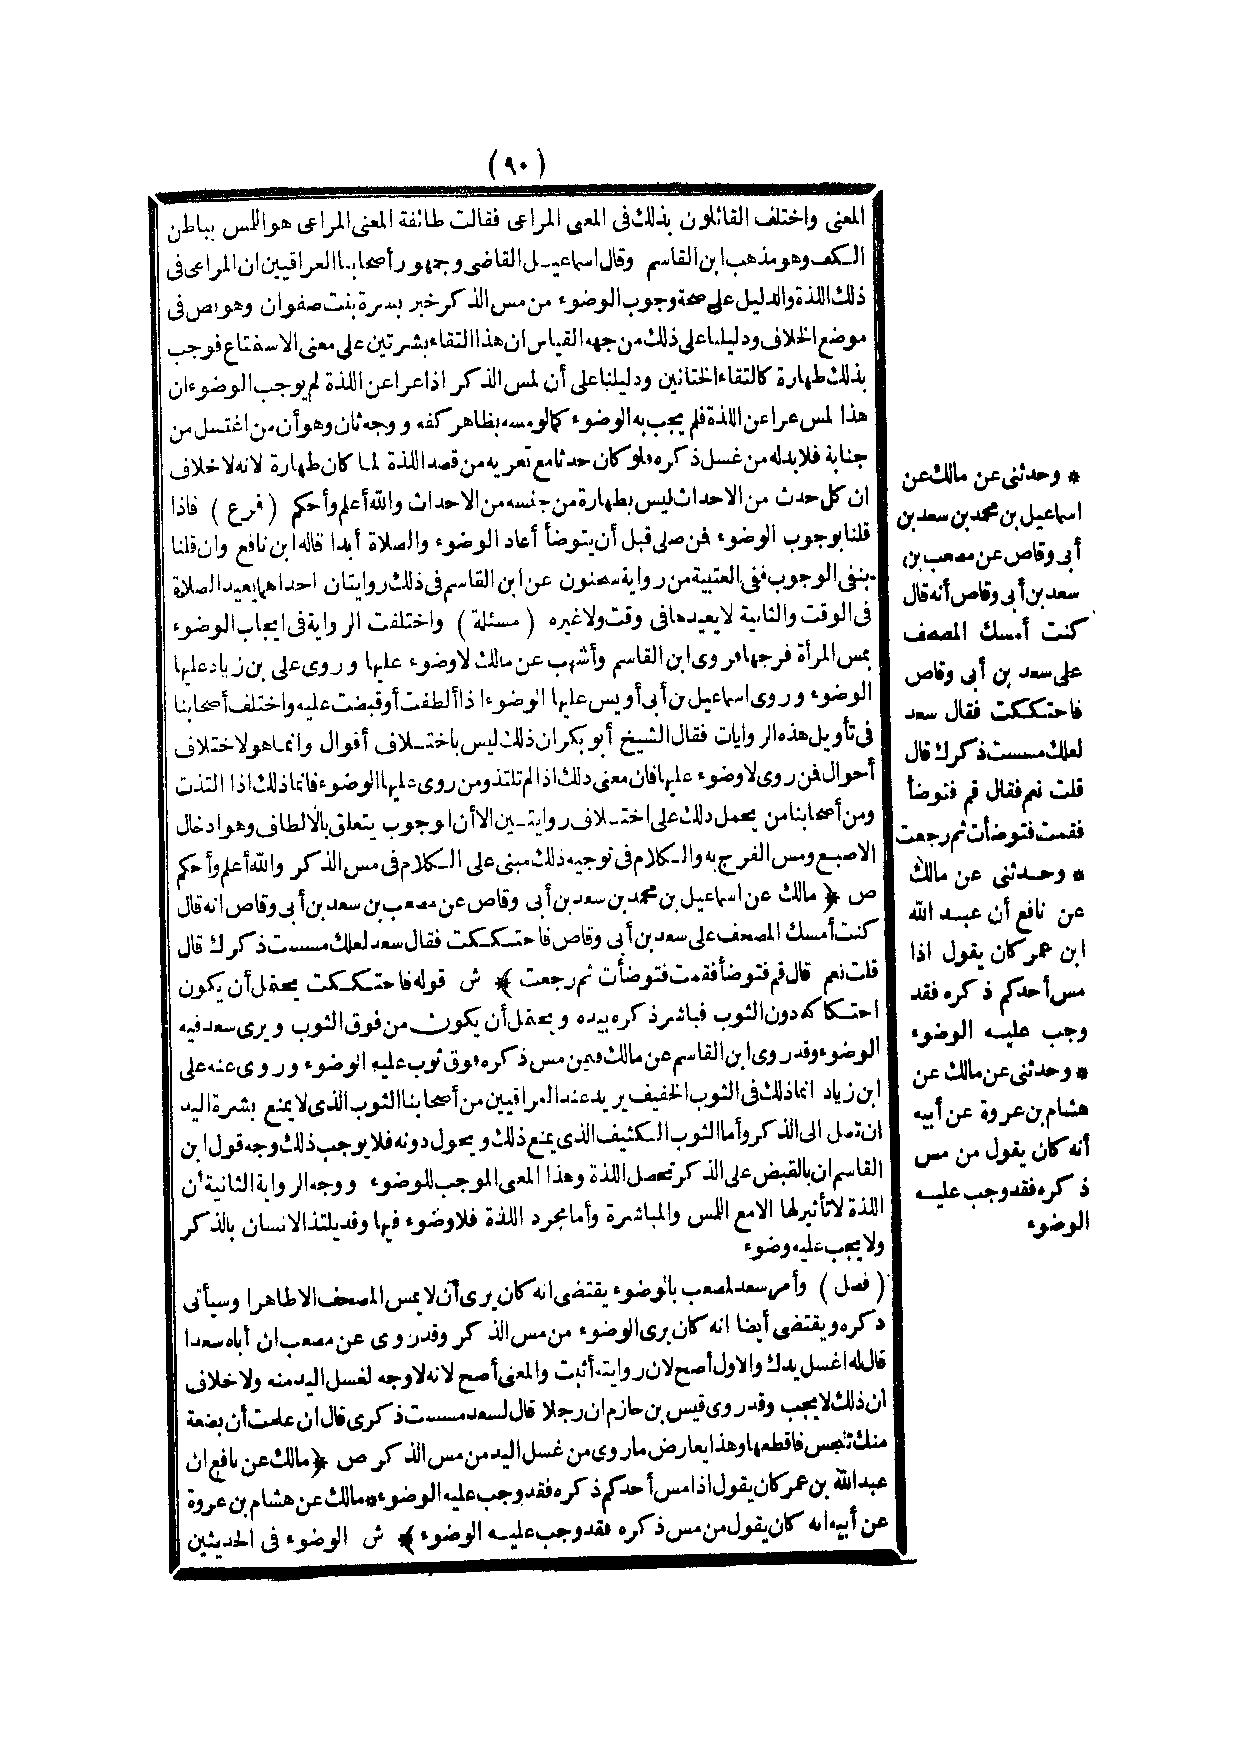 (٩٠)
المعنى واختلف القائلون بذلك فى المعنى المراعى فقالت طائفة المعنى المراعى هو اللمس بباطن
الكف وهو مذهب ابن القاسم وقال اسماعيل القاضى وجمهور أصحابنا العراقيين ان المراعى فى
ذلك اللذة والدليل على صحة وجوب الوضوء من مس الذكر خبر بسرة بنت صفوان وهو نص فى
موضع الخلاف ودليلنا على ذلك من جهة القياس ان هذا التقاء بشرتين على معنى الاستمتاع فوجب
بذلك طهارة كالتقاء الختانين ودليلنا على أن لمس الذكر اذا عرا عن اللذة لم يوجب الوضوء ان
هذا لمس عرا عن اللذة فلم يجب به الوضوء كما لو مسه بظاهر كفه ووجه ثان وهو أن من اغتسل من
جنابة فلا بد له من غسل ذكره فلو كان حدثا مع تعريه من قصد اللذة لما كان طهارة لانه لا خلاف
ان كل حدث من الاحداث ليس بطهارة من جنسه من الاحداث والله أعلم وأحكم (فرع) فاذا
قلنا بوجوب الوضوء فمن صلى قبل أن يتوضأ أعاد الوضوء والصلاة أبدا قاله ابن نافع وان قلنا
بنفى الوجوب ففى العتبية من رواية سحنون عن ابن القاسم فى ذلك روايتان احداهما يعيد الصلاة
فى الوقت والثانية لا يعيدها فى وقت ولا غيره (مسئلة) واختلفت الرواية فى ايجاب الوضوء
بمس المرأة فرجها فروى ابن القاسم وأشهب عن مالك لا وضوء عليها وروى على بن زياد عليها
الوضوء وروى اسماعيل بن أبى أويس عليها الوضوء اذا ألطفت أو قبضت عليه واختلف أصحابنا
فى تأويل هذه الروايات فقال الشيخ أبو بكر ان ذلك ليس باختلاف أقوال وانما هو لاختلاف
أحوال فمن روى لا وضوء عليها فان معنى ذلك اذا لم تلتذ ومن روى عليها الوضوء فانما ذلك اذا التذت
ومن أصحابنا من يحمل ذلك على اختلاف روايتين الا أن الوجوب يتعلق بالالطاف وهو ادخال
الاصبع ومس الفرج به والكلام فى توجيه ذلك مبنى على الكلام فى مس الذكر والله أعلم وأحكم
ص ﴿ مالك عن اسماعيل بن محمد بن سعد بن أبى وقاص عن مصعب بن سعد بن أبى وقاص انه قال
كنت أمسك المصحف على سعد بن أبى وقاص فاحتككت فقال سعد لعلك مسست ذكرك قال
قلت نعم قال قم فتوضأ فقمت فتوضأت ثم رجعت ﴾ ش قوله فاحتككت يحتمل أن يكون
احتكاكه دون الثوب فباشر ذكره بيده ويحتمل أن يكون من فوق الثوب ويرى سعد فيه
الوضوء وقد روى ابن القاسم عن مالك فيمن مس ذكره فوق ثوب عليه الوضوء وروى عنه على
ابن زياد انما ذلك فى الثوب الخفيف يريد عند العراقيين من أصحابنا الثوب الذى لا يمنع بشرة اليد
ان تصل الى الذكر وأما الثوب الكثيف الذى يمنع ذلك ويحول دونه فلا يوجب ذلك وجه قول ابن
القاسم ان بالقبض على الذكر تحصل اللذة وهذا المعنى الموجب للوضوء ووجه الرواية الثانية أن
اللذة لا تأثير لها الا مع اللمس والمباشرة وأما مجرد اللذة فلا وضوء فيها وقد يلتذ الانسان بالذكر
ولا يجب عليه وضوء
(فصل) وأمر سعد لمصعب بالوضوء يقتضى انه كان يرى أن لا يمس المصحف الا طاهرا وسيأتى
ذكره ويقتضى أيضا انه كان يرى الوضوء من مس الذكر وقد روى عن مصعب ان أباه سعدا
قال له اغسل يدك والاول أصح لان روايته أثبت والمعنى أصح لانه لا وجه لغسل اليد منه ولا خلاف
ان ذلك لا يجب وقد روى قيس بن حازم ان رجلا قال لسعد مسست ذكرى قال ان علمت أن بضعة
منك تنجس فاقطعها وهذا يعارض ما روى من غسل اليد من مس الذكر ص ﴿ مالك عن نافع ان
عبد الله بن عمر كان يقول اذا مس أحدكم ذكره فقد وجب عليه الوضوء * مالك عن هشام بن عروة
عن أبيه انه كان يقول من مس ذكره فقد وجب عليه الوضوء ﴾ ش الوضوء فى الحديثين
* وحدثنى عن مالك عن
اسماعيل بن محمد بن سعد بن
أبى وقاص عن مصعب بن
سعد بن أبى وقاص أنه قال
كنت أمسك المصحف
على سعد بن أبى وقاص
فاحتككت فقال سعد
لعلك مسست ذكرك قال
قلت نعم فقال قم فتوضأ
فقمت فتوضأت ثم رجعت
* وحدثنى عن مالك
عن نافع أن عبد الله
ابن عمر كان يقول اذا
مس أحدكم ذكره فقد
وجب عليه الوضوء
* وحدثنى عن مالك عن
هشام بن عروة عن أبيه
أنه كان يقول من مس
ذكره فقد وجب عليه
الوضوء